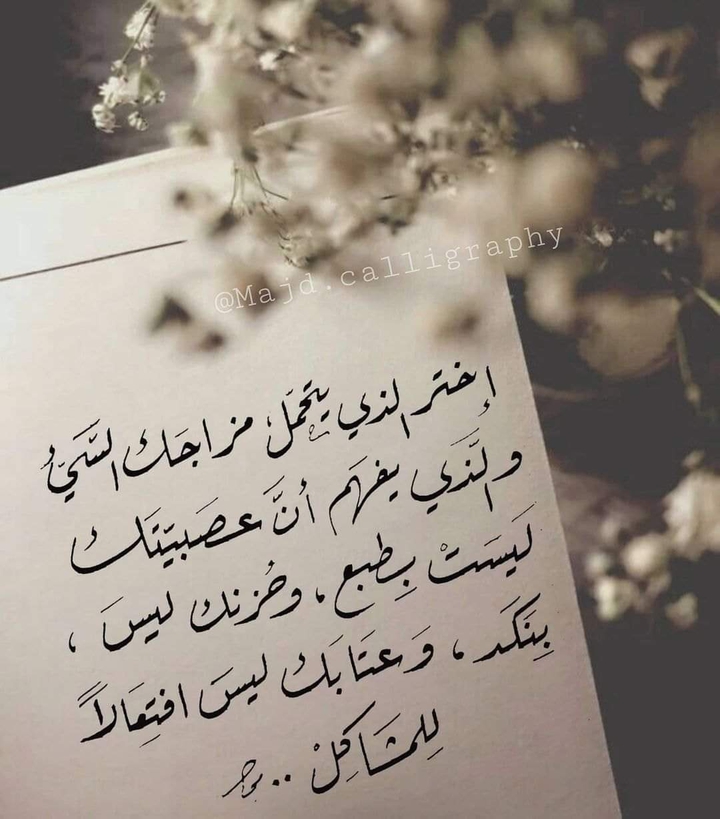 @Majd.calligraphy
إختر الذي يتحمّل مزاجَك السَّيّئُ
والَّذي يفهَم أنَّ عصَبيّتَك
لَيسَتْ بِطبع، وحُزنك ليسَ،
بِنَكَد، وَعتَابَك ليسَ افتِعَالاً
لِلمشَاكِلْ ..